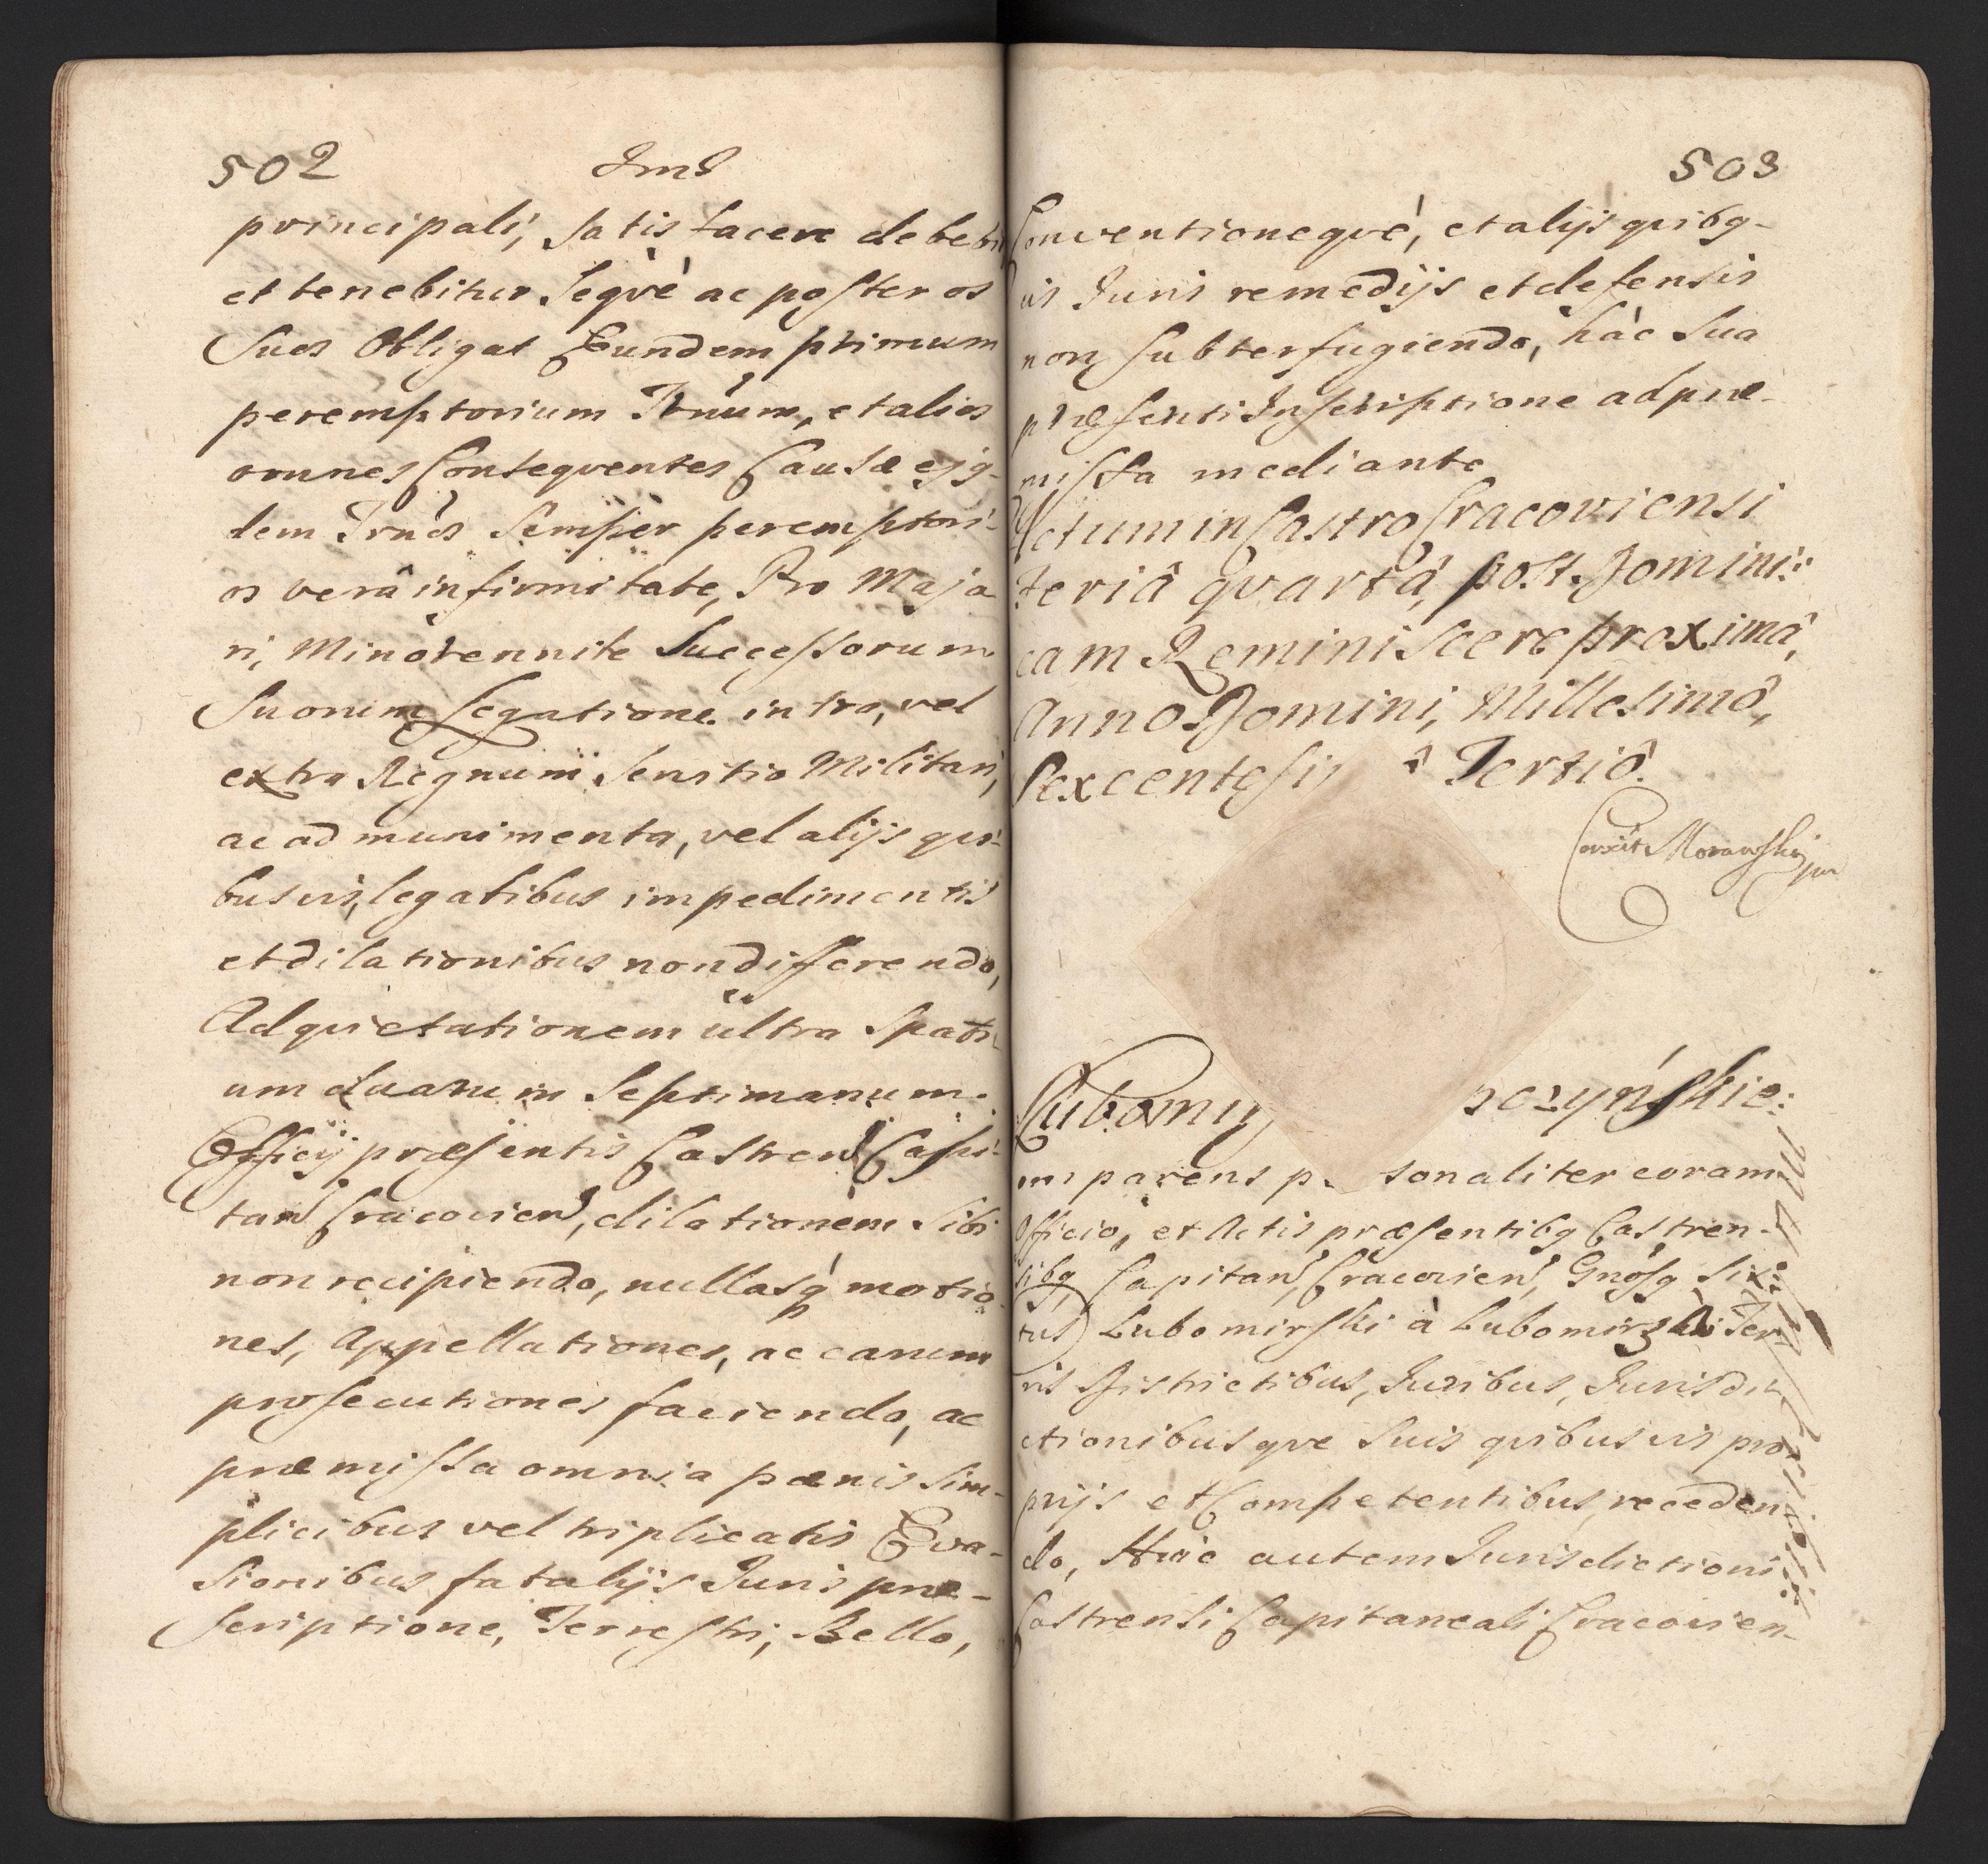 502 Ims
principali, satisfacere debebit
et tenebitur Seqvè ac posteros
Suos Obligat Eundem primum
peremptorium Trnum, et alios
omnes Conseqventes Causæ ejq-
dem Trnos Semper peremptori-
os verâ infirmitate, Pro Majo-
ri, Minorennite Successorum
Suorum Legatione intra, vel
extra Regnum Servitio Militari,
ac ad munimenta, vel alijs qui-
busvis, legalibus impedimentis
et dilationibus non differendo,
Ad quietationem ultra Spati-
um duarum Septimanarum.
Officij præsentis Castren Capi-
tan Cracovien, dilationem Sibi
non recipiendo, nullasq motio-
nes, Appellationes, ac earum
prosecutiones faciendo, ac
præmissa omnia pænis Sim-
plicibus vel triplicatis Eva-
sionibus fatalijs Juris præ-
scriptione, Terrestri, Bello,
503
Conventioneqvè, et alijs quibq-
vis Juris remedijs et defensis
non subterfugiendo, hàc Sua
præsenti Inscriptione ad præ-
missa mediante
Actum in Castro Cracoviensi
Feriâ qvartâ, post Domini:
cam Reminiscere proximâ,
Anno Domini, Millesimô,
Sexcentesi ô Tertiô.
Corrixit Morawski
Lubomir czyńskie:
mparens p sonaliter coram
Officio, et Actis præsentibq Castren-
sibq, Capitan, Cracovien, Gnosq Six:
tus Lubomirski à Lubomirz Ter
ris Districtibus, Juribus, Jurisdi
ctionibusqve Suis quibusvis pro
prijs et Competentibus receden
do, Huic autem Jurisdictioni
Castrensi Capitaneali Cracovien-